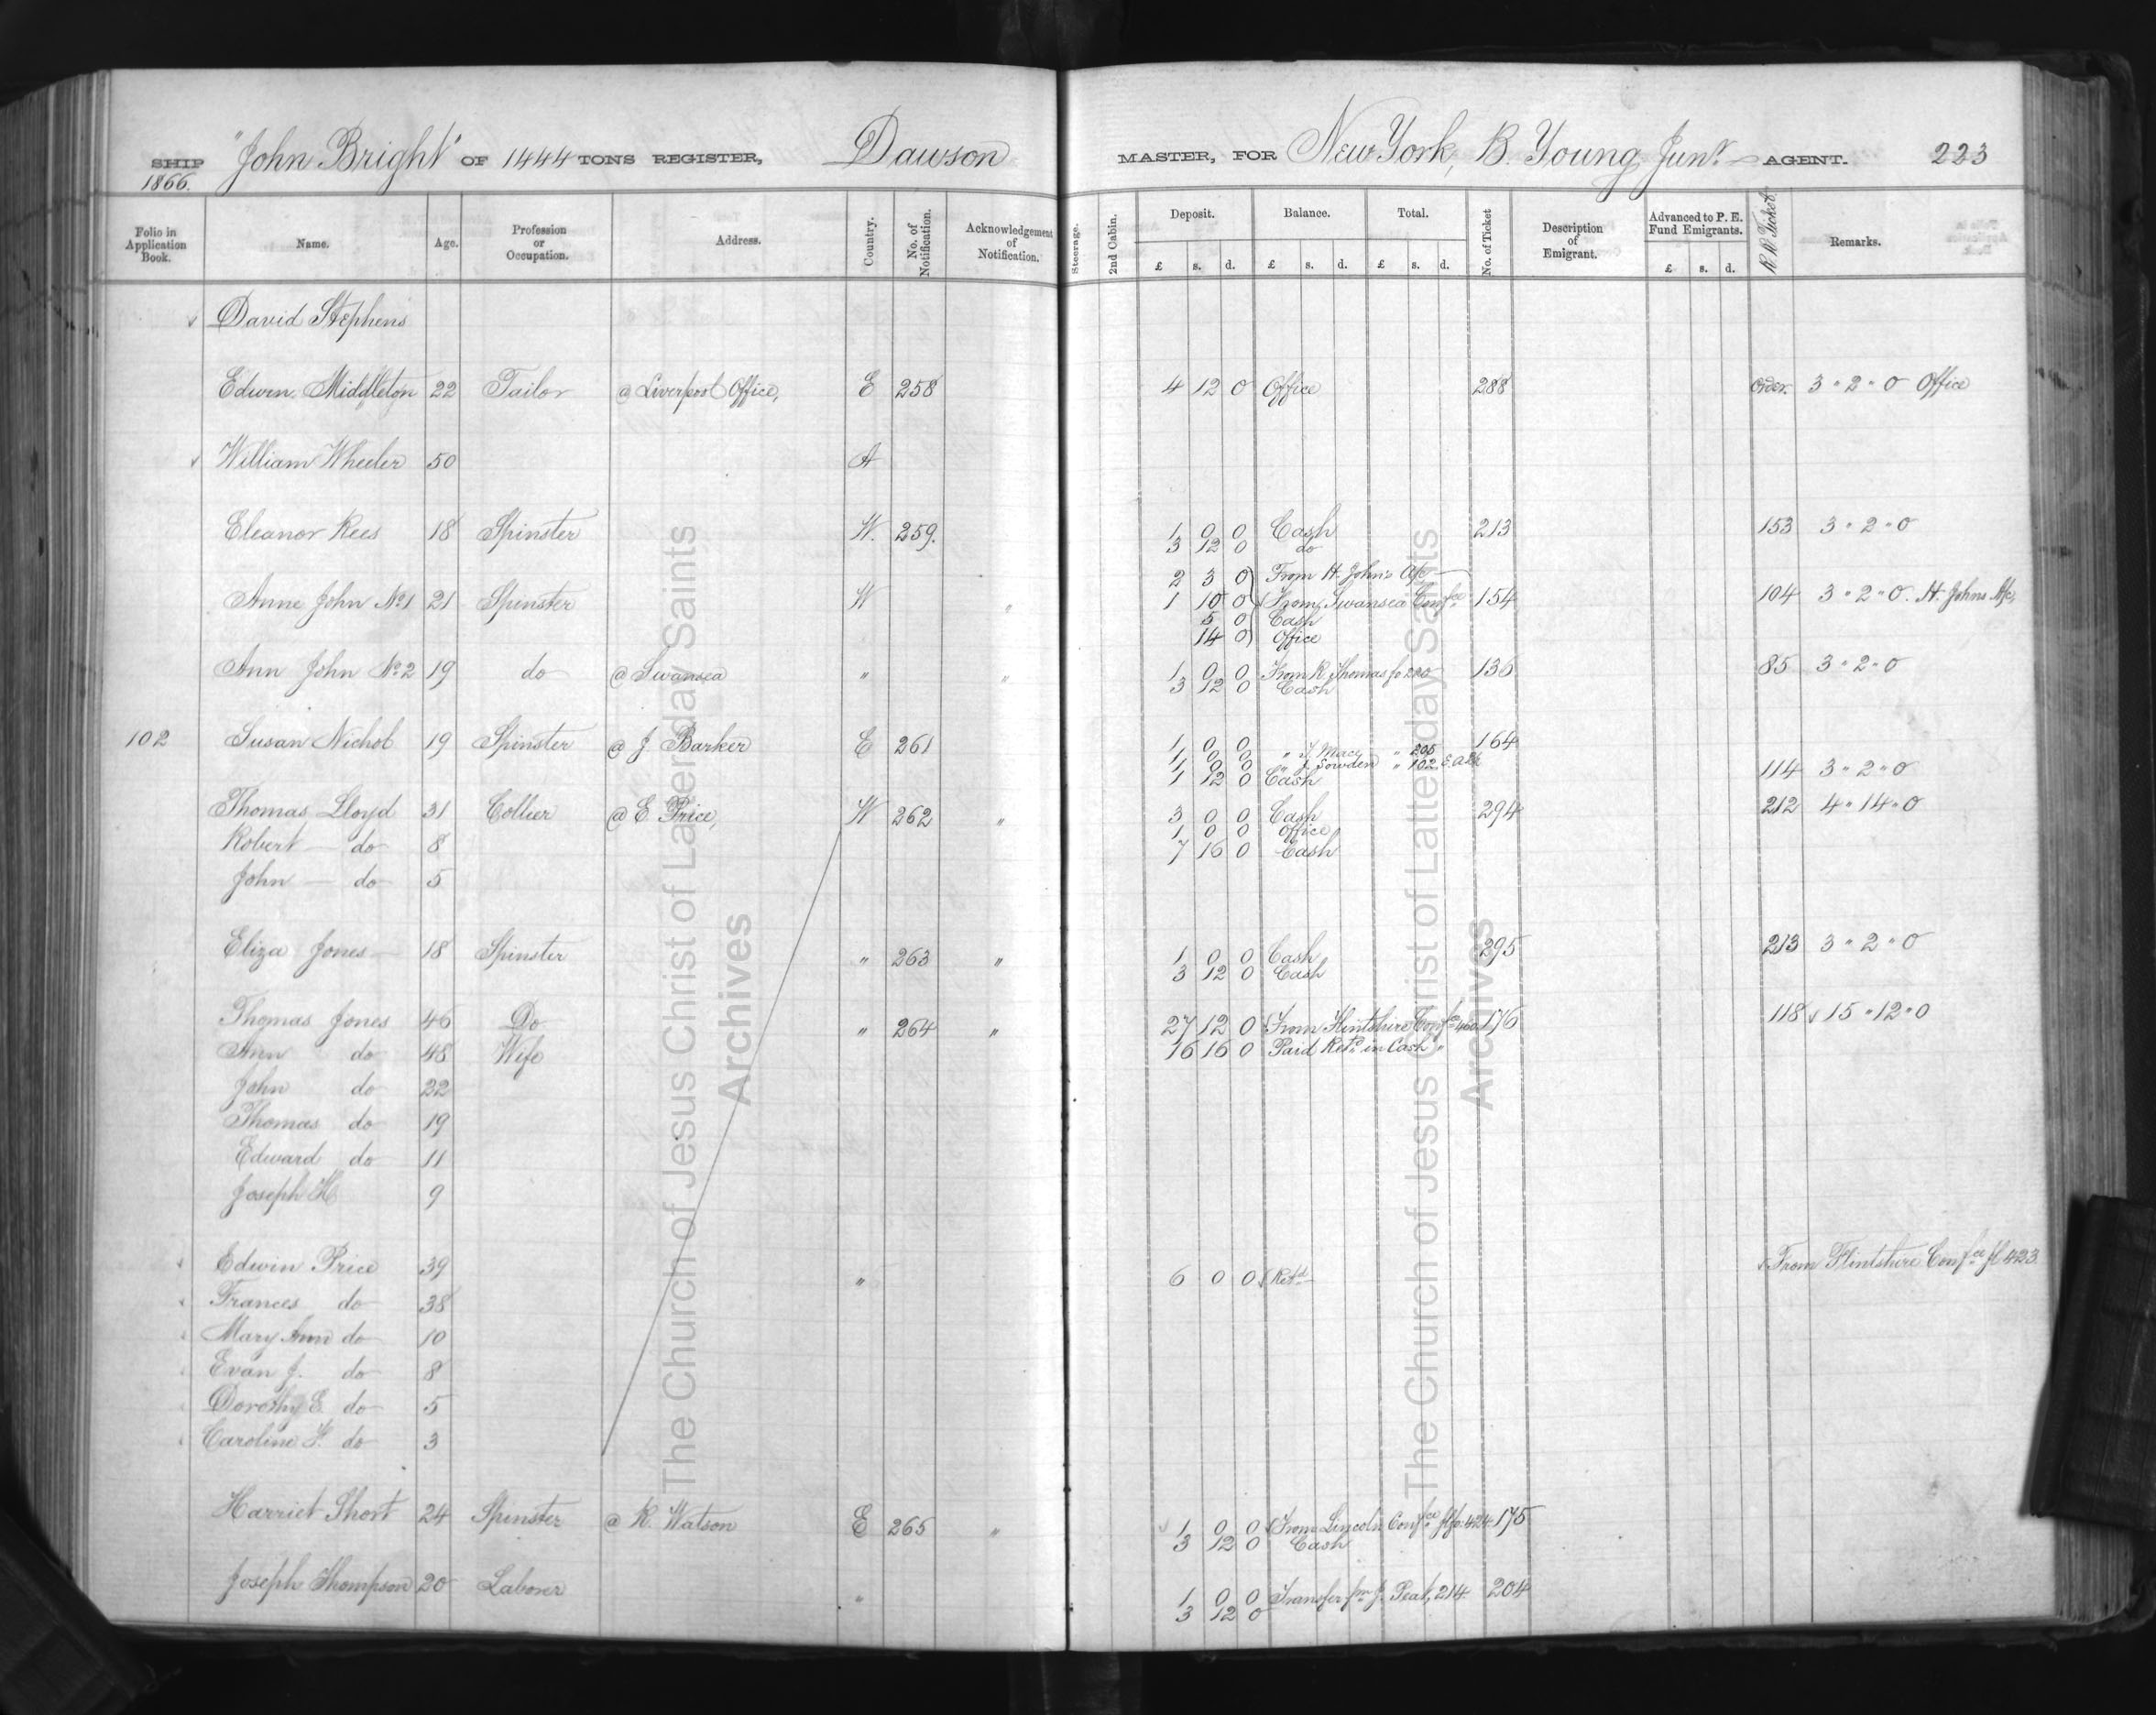 SHIP "John Bright" OF 1444 TONS REGISTER, Dawson MASTER, FOR New York, B. Young Junr AGENT. 223
1866.
Folio in Application Book. Name. Age. Profession or Occupation. Address. Country. No. of Notification. Acknowledgement of Notification. Steerage. 2nd Cabin. Deposit. Balance. Total. No. of Ticket Description of Emigrant. Advanced to P. E. Fund Emigrants. R W Ticket Remarks.
£ s. d. £ s. d. £ s. d. £ s. d.
David Stephens
Edwin Middleton 22 Tailor @ Liverpool Office, E 258 4 12 0 Office 288 Order. 3 " 2 " 0 Office
William Wheeler 50 A
Eleanor Rees 18 Spinster W. 259. 1 0 0 Cash 213 153 3 " 2 " 0
3 12 0 do
2 3 0 From H. John's A/c
Anne John No 1 21 Spinster W " 1 10 0 From Swansea Confce 154 104 3 " 2 " 0. H. Johns A/c,
5 0 Cash
14 0 Office
Ann John No 2 19 do @ Swansea " " 1 0 0 From R. Thomas fo 220 136 85 3 " 2 " 0
3 12 0 Cash
102 Susan Nichol 19 Spinster @ J. Barker E 261 1 0 0 164
1 0 0 " J. Mace " 205
1 0 0 " J. Sowden " 102
1 12 0 Cash 114 3 " 2 " 0
Thomas Lloyd 31 Collier @ E Price, W 262 " 3 0 0 Cash 294 212 4 " 14 " 0
Robert do 8 1 0 0 Office
7 16 0 Cash
John do 5
Eliza Jones 18 Spinster " 263 " 1 0 0 Cash 295 213 3 " 2 " 0
3 12 0 Cash
Thomas Jones 46 Do " 264 " 27 12 0 From Flintshire Confce 176 118 15 " 12 " 0
Ann do 48 Wife 16 16 0 Paid Retd in Cash "
John do 22
Thomas do 19
Edward do 11
Joseph H 9
Edwin Price 39 " 6 0 0 Retd From Flintshire Confce fl 423
Frances do 38
Mary Ann do 10
Evan J. do 8
Dorothy E do 5
Caroline F. do 3
Harriet Short 24 Spinster @ R. Watson E 265 " 1 0 0 From Lincoln Confce fo: 424 175
3 12 0 Cash
Joseph Thompson 20 Laborer " 1 0 0 Transfer fm J. Peat, 214 204
3 12 0
The Church of Jesus Christ of Latter-day Saints
Archives
The Church of Jesus Christ of Latter-day Saints
Archives